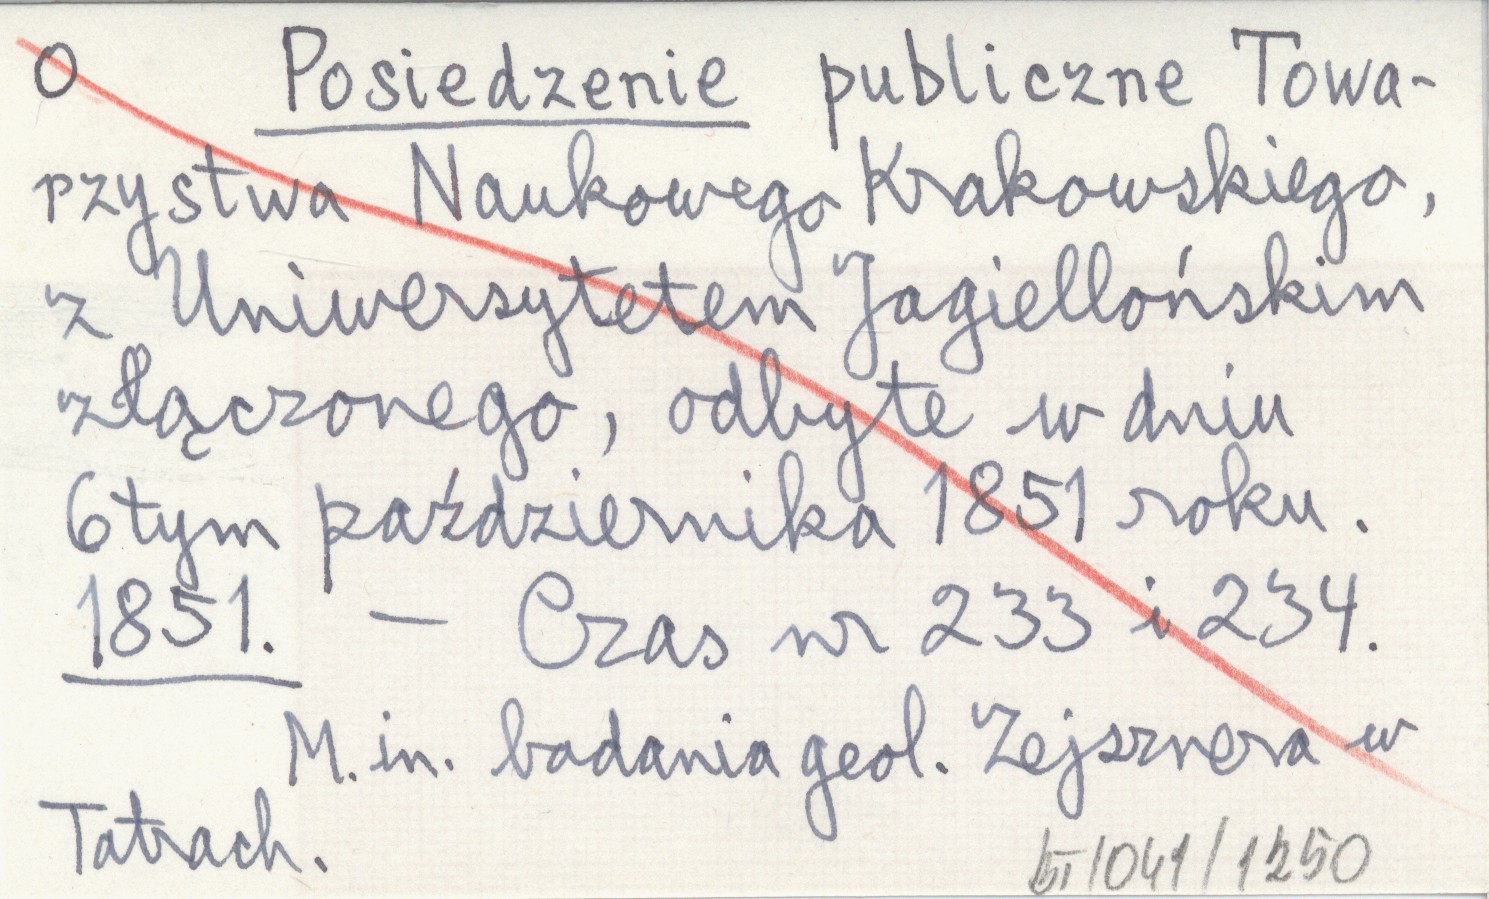 O Posiedzenie publiczne Towa-
rzystwa Naukowego Krakowskiego,
z Uniwersytetem Jagiellońskim
złączonego, odbyte w dniu
6tym października 1851 roku.
1851. — Czas nr 233 i 234.
M. in. badania geol. Zejsznera w
Tatrach.
/041/1250